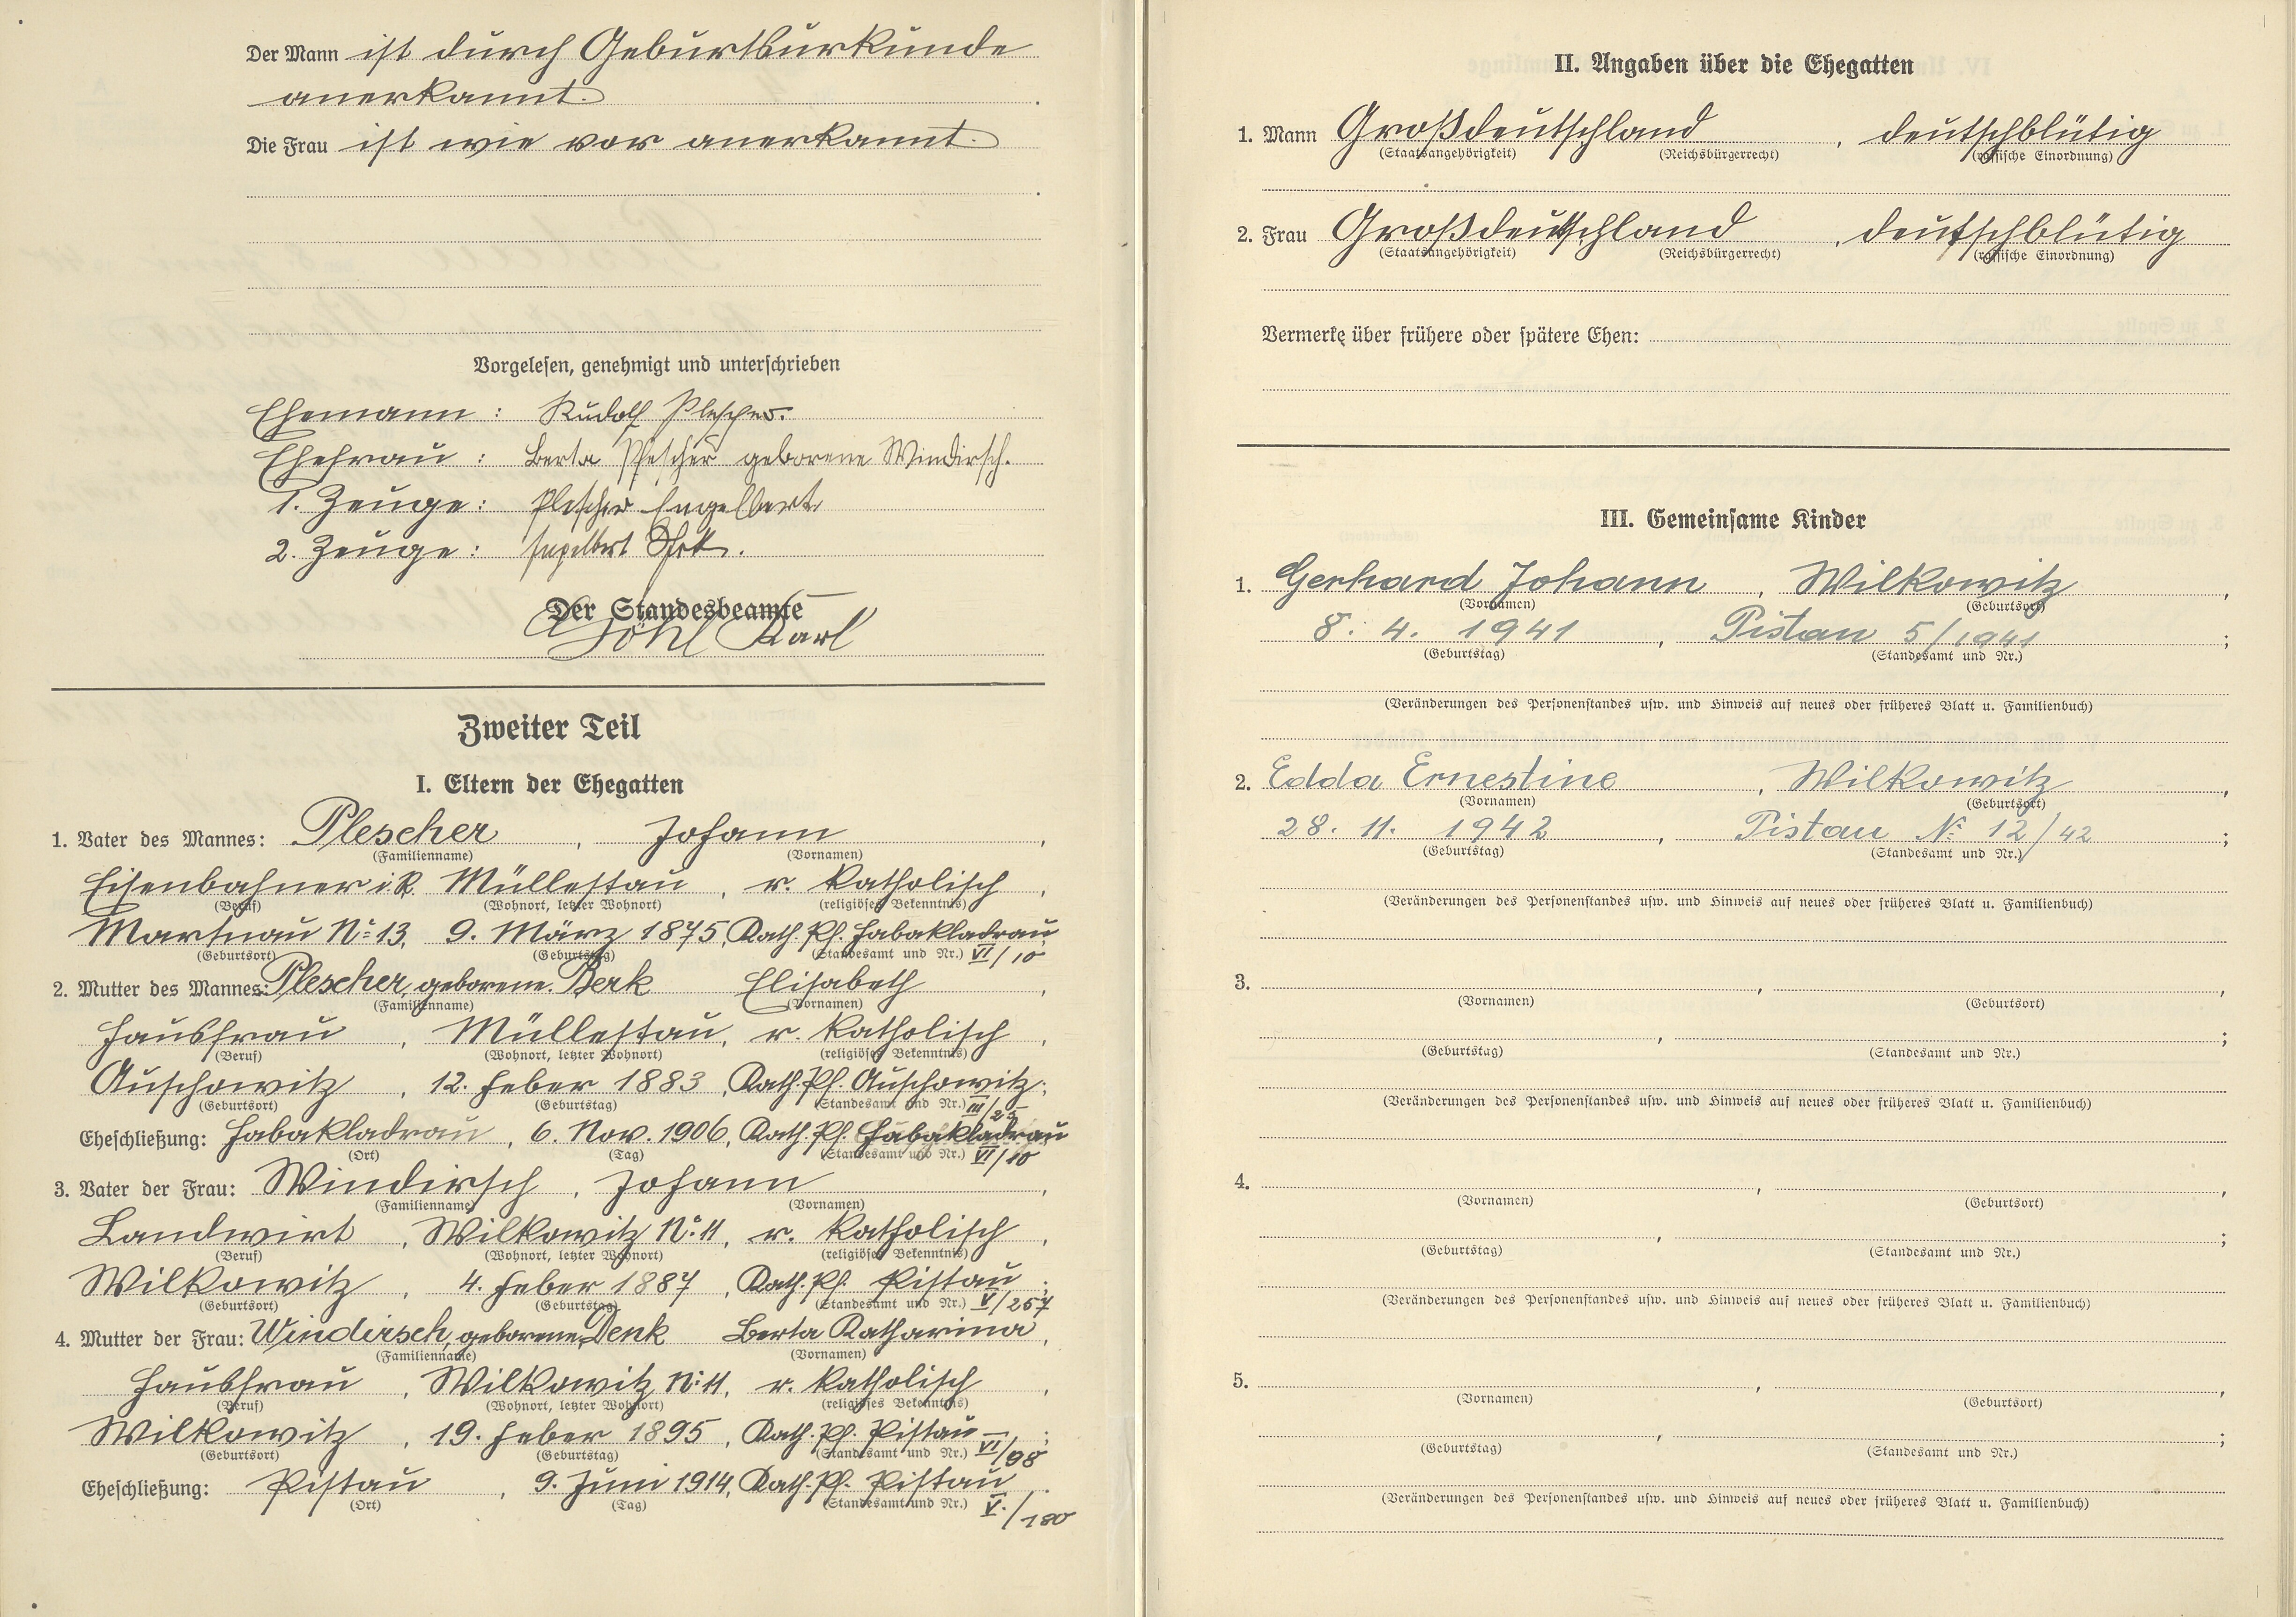 Der Mann ist durch Geburtsurkunde
anerkannt.
Die Frau ist wie vor anerkannt.
Vorgelesen, genehmigt und unterschrieben
Ehemann : Rudolf Plescher.
Ehefrau : Berta Plescher geborene Windirsch.
1. Zeuge : Plescher Engelbert
2. Zeuge : Engelbert
Der Standesbeamte
Karl
Zweiter Teil
I. Eltern der Ehegatten
1. Vater des Mannes: Plescher , Johann ,
(Familienname) (Vornamen)
Eisenbahner i. R. Müllestau , r. katholisch ,
(Beruf) (Wohnort, letzter Wohnort) (religiöses Bekenntnis)
Martnau No 13, 9. März 1875, Kath. Pf. Habakladrau
(Geburtsort) (Geburtstag) (Standesamt und Nr.) VI/10
2. Mutter des Mannes: Plescher, geborene Berk Elisabeth ,
(Familienname) (Vornamen)
Hausfrau , Müllestau, r. katholisch ,
(Beruf) (Wohnort, letzter Wohnort) (religiöses Bekenntnis)
Auschowitz , 12. Feber 1883, Kath. Pf. Auschowitz;
(Geburtsort) (Geburtstag) (Standesamt und Nr.) III/25
Eheschließung: Habakladrau , 6. Nov. 1906, Kath. Pf. Habakladrau
(Ort) (Tag) (Standesamt und Nr.) VI/10
3. Vater der Frau: Windirsch , Johann ,
(Familienname) (Vornamen)
Landwirt , Wilkowitz No 11, r. katholisch ,
(Beruf) (Wohnort, letzter Wohnort) (religiöses Bekenntnis)
Wilkowitz , 4. Feber 1887 , Kath. Pf. Pistau ;
(Geburtsort) (Geburtstag) (Standesamt und Nr.) V/257
4. Mutter der Frau: Windirsch, geborene Denk Berta Katharina ,
(Familienname) (Vornamen)
Hausfrau , Wilkowitz No 11, r. katholisch ,
(Beruf) (Wohnort, letzter Wohnort) (religiöses Bekenntnis)
Wilkowitz , 19. Feber 1895 , Kath. Pf. Pistau ;
(Geburtsort) (Geburtstag) (Standesamt und Nr.) VI/98
Eheschließung: Pistau , 9. Juni 1914, Kath. Pf. Pistau .
(Ort) (Tag) (Standesamt und Nr.) V./180
II. Angaben über die Ehegatten
1. Mann Großdeutschland , deutschblütig
(Staatsangehörigkeit) (Reichsbürgerrecht) (rassische Einordnung)
2. Frau Großdeutschland , deutschblütig
(Staatsangehörigkeit) (Reichsbürgerrecht) (rassische Einordnung)
Vermerke über frühere oder spätere Ehen:
III. Gemeinsame Kinder
1. Gerhard Johann , Wilkowitz ,
(Vornamen) (Geburtsort)
8. 4. 1941 , Pistau 5/1941 ;
(Geburtstag) (Standesamt und Nr.)
(Veränderungen des Personenstandes usw. und Hinweis auf neues oder früheres Blatt u. Familienbuch)
2. Edda Ernestine , Wilkowitz ,
(Vornamen) (Geburtsort)
28. 11. 1942 , Pistau No 12/42 ;
(Geburtstag) (Standesamt und Nr.)
(Veränderungen des Personenstandes usw. und Hinweis auf neues oder früheres Blatt u. Familienbuch)
3. , ,
(Vornamen) (Geburtsort)
, ;
(Geburtstag) (Standesamt und Nr.)
(Veränderungen des Personenstandes usw. und Hinweis auf neues oder früheres Blatt u. Familienbuch)
4. , ,
(Vornamen) (Geburtsort)
, ;
(Geburtstag) (Standesamt und Nr.)
(Veränderungen des Personenstandes usw. und Hinweis auf neues oder früheres Blatt u. Familienbuch)
5. , ,
(Vornamen) (Geburtsort)
, ;
(Geburtstag) (Standesamt und Nr.)
(Veränderungen des Personenstandes usw. und Hinweis auf neues oder früheres Blatt u. Familienbuch)